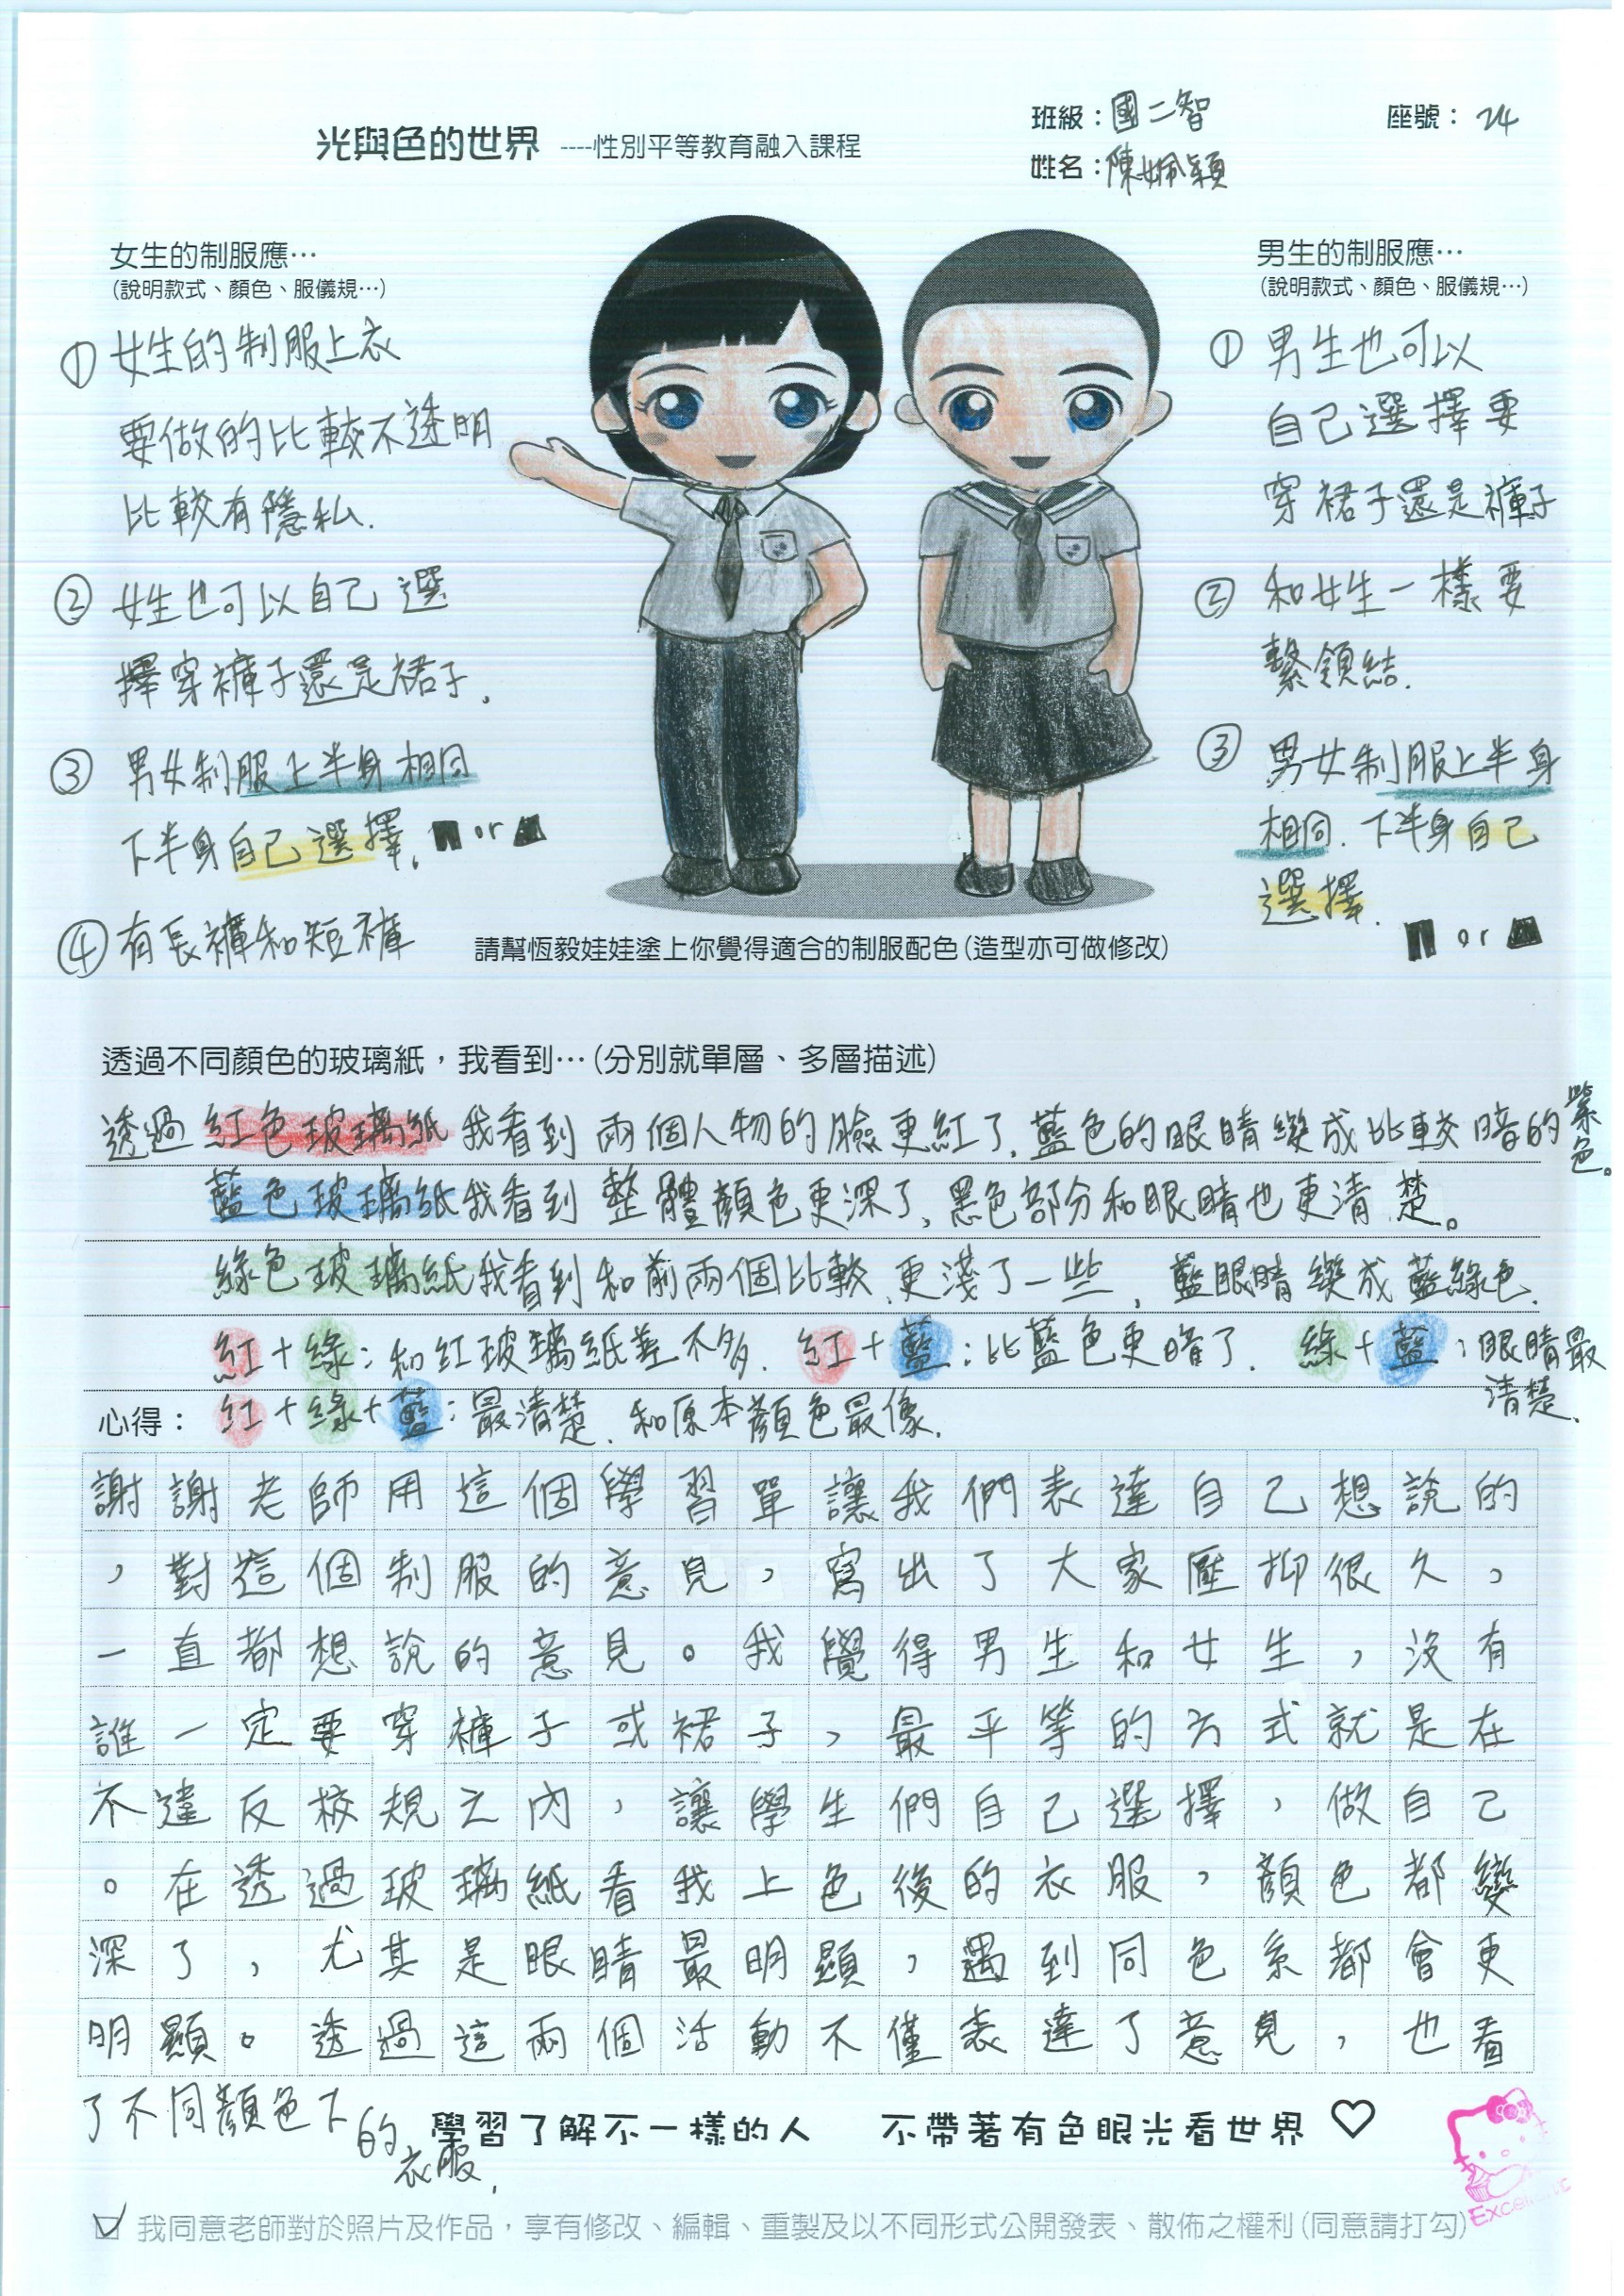 光與色的世界 ----性別平等教育融入課程
班級：國二智
座號：24
姓名：陳姵穎
女生的制服應…
(說明款式、顏色、服儀規…)
① 女生的制服上衣
要做的比較不透明
比較有隱私.
② 女生也可以自己選
擇穿褲子還是裙子.
③ 男女制服上半身相同
下半身自己選擇. or
④ 有長褲和短褲
男生的制服應…
(說明款式、顏色、服儀規…)
① 男生也可以
自己選擇要
穿裙子還是褲子
② 和女生一樣要
繫領結.
③ 男女制服上半身
相同. 下半身自己
選擇.
or
請幫恆毅娃娃塗上你覺得適合的制服配色(造型亦可做修改)
透過不同顏色的玻璃紙，我看到…(分別就單層、多層描述)
透過紅色玻璃紙我看到兩個人物的臉更紅了.藍色的眼睛變成比較暗的紫色。
藍色玻璃紙我看到整體顏色更深了、黑色部分和眼睛也更清楚。
綠色玻璃紙我看到和前兩個比較.更淺了一些，藍眼睛變成藍綠色.
紅+綠：和紅玻璃紙差不多. 紅+藍：比藍色更暗了. 綠+藍：眼睛最清楚.
心得： 紅+綠+藍：最清楚.和原本顏色最像.
謝謝老師用這個學習單讓我們表達自己想說的
，對這個制服的意見，寫出了大家壓抑很久，
一直都想說的意見。我覺得男生和女生，沒有
誰一定要穿褲子或裙子，最平等的方式就是在
不違反校規之內，讓學生們自己選擇，做自己
。在透過玻璃紙看我上色後的衣服，顏色都變
深了，尤其是眼睛最明顯，遇到同色系都會更
明顯。透過這兩個活動不僅表達了意見，也看
了不同顏色下的衣服.
學習了解不一樣的人 不帶著有色眼光看世界 ♡
Excellent
☑ 我同意老師對於照片及作品，享有修改、編輯、重製及以不同形式公開發表、散佈之權利(同意請打勾)